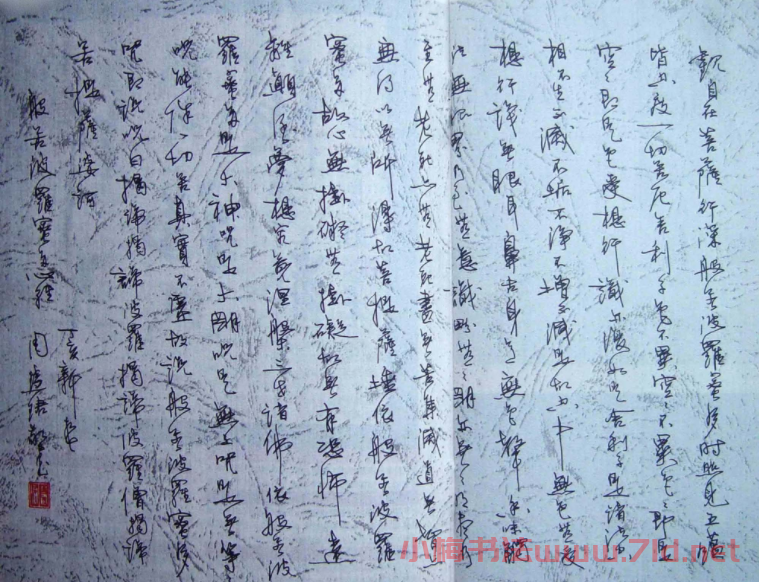 观自在菩萨行深般若波羅蜜多时照见五蕴
皆空度一切苦厄舍利子色不異空空不異色色即是
空空即是色受想行識亦復如是舍利子是諸法空
相不生不滅不垢不淨不增不減是故空中無色無受
想行識無眼耳鼻舌身意無色聲香味觸
法無眼界乃至無意識界無無明亦無無明盡乃
至無老死亦無老死盡無苦集滅道無智亦
無得以無所得故菩提薩埵依般若波羅
蜜多故心無掛礙無掛礙故無有恐怖遠
離顛倒夢想究竟涅槃三世諸佛依般若波
羅蜜多是大神咒是大明咒是無上咒是無等等
咒能除一切苦真實不虛故说般若波羅蜜多
咒即说咒曰揭諦揭諦波羅揭諦波羅僧揭諦
菩提薩婆訶
般若波羅蜜多心經
小梅书法www.7ld.net